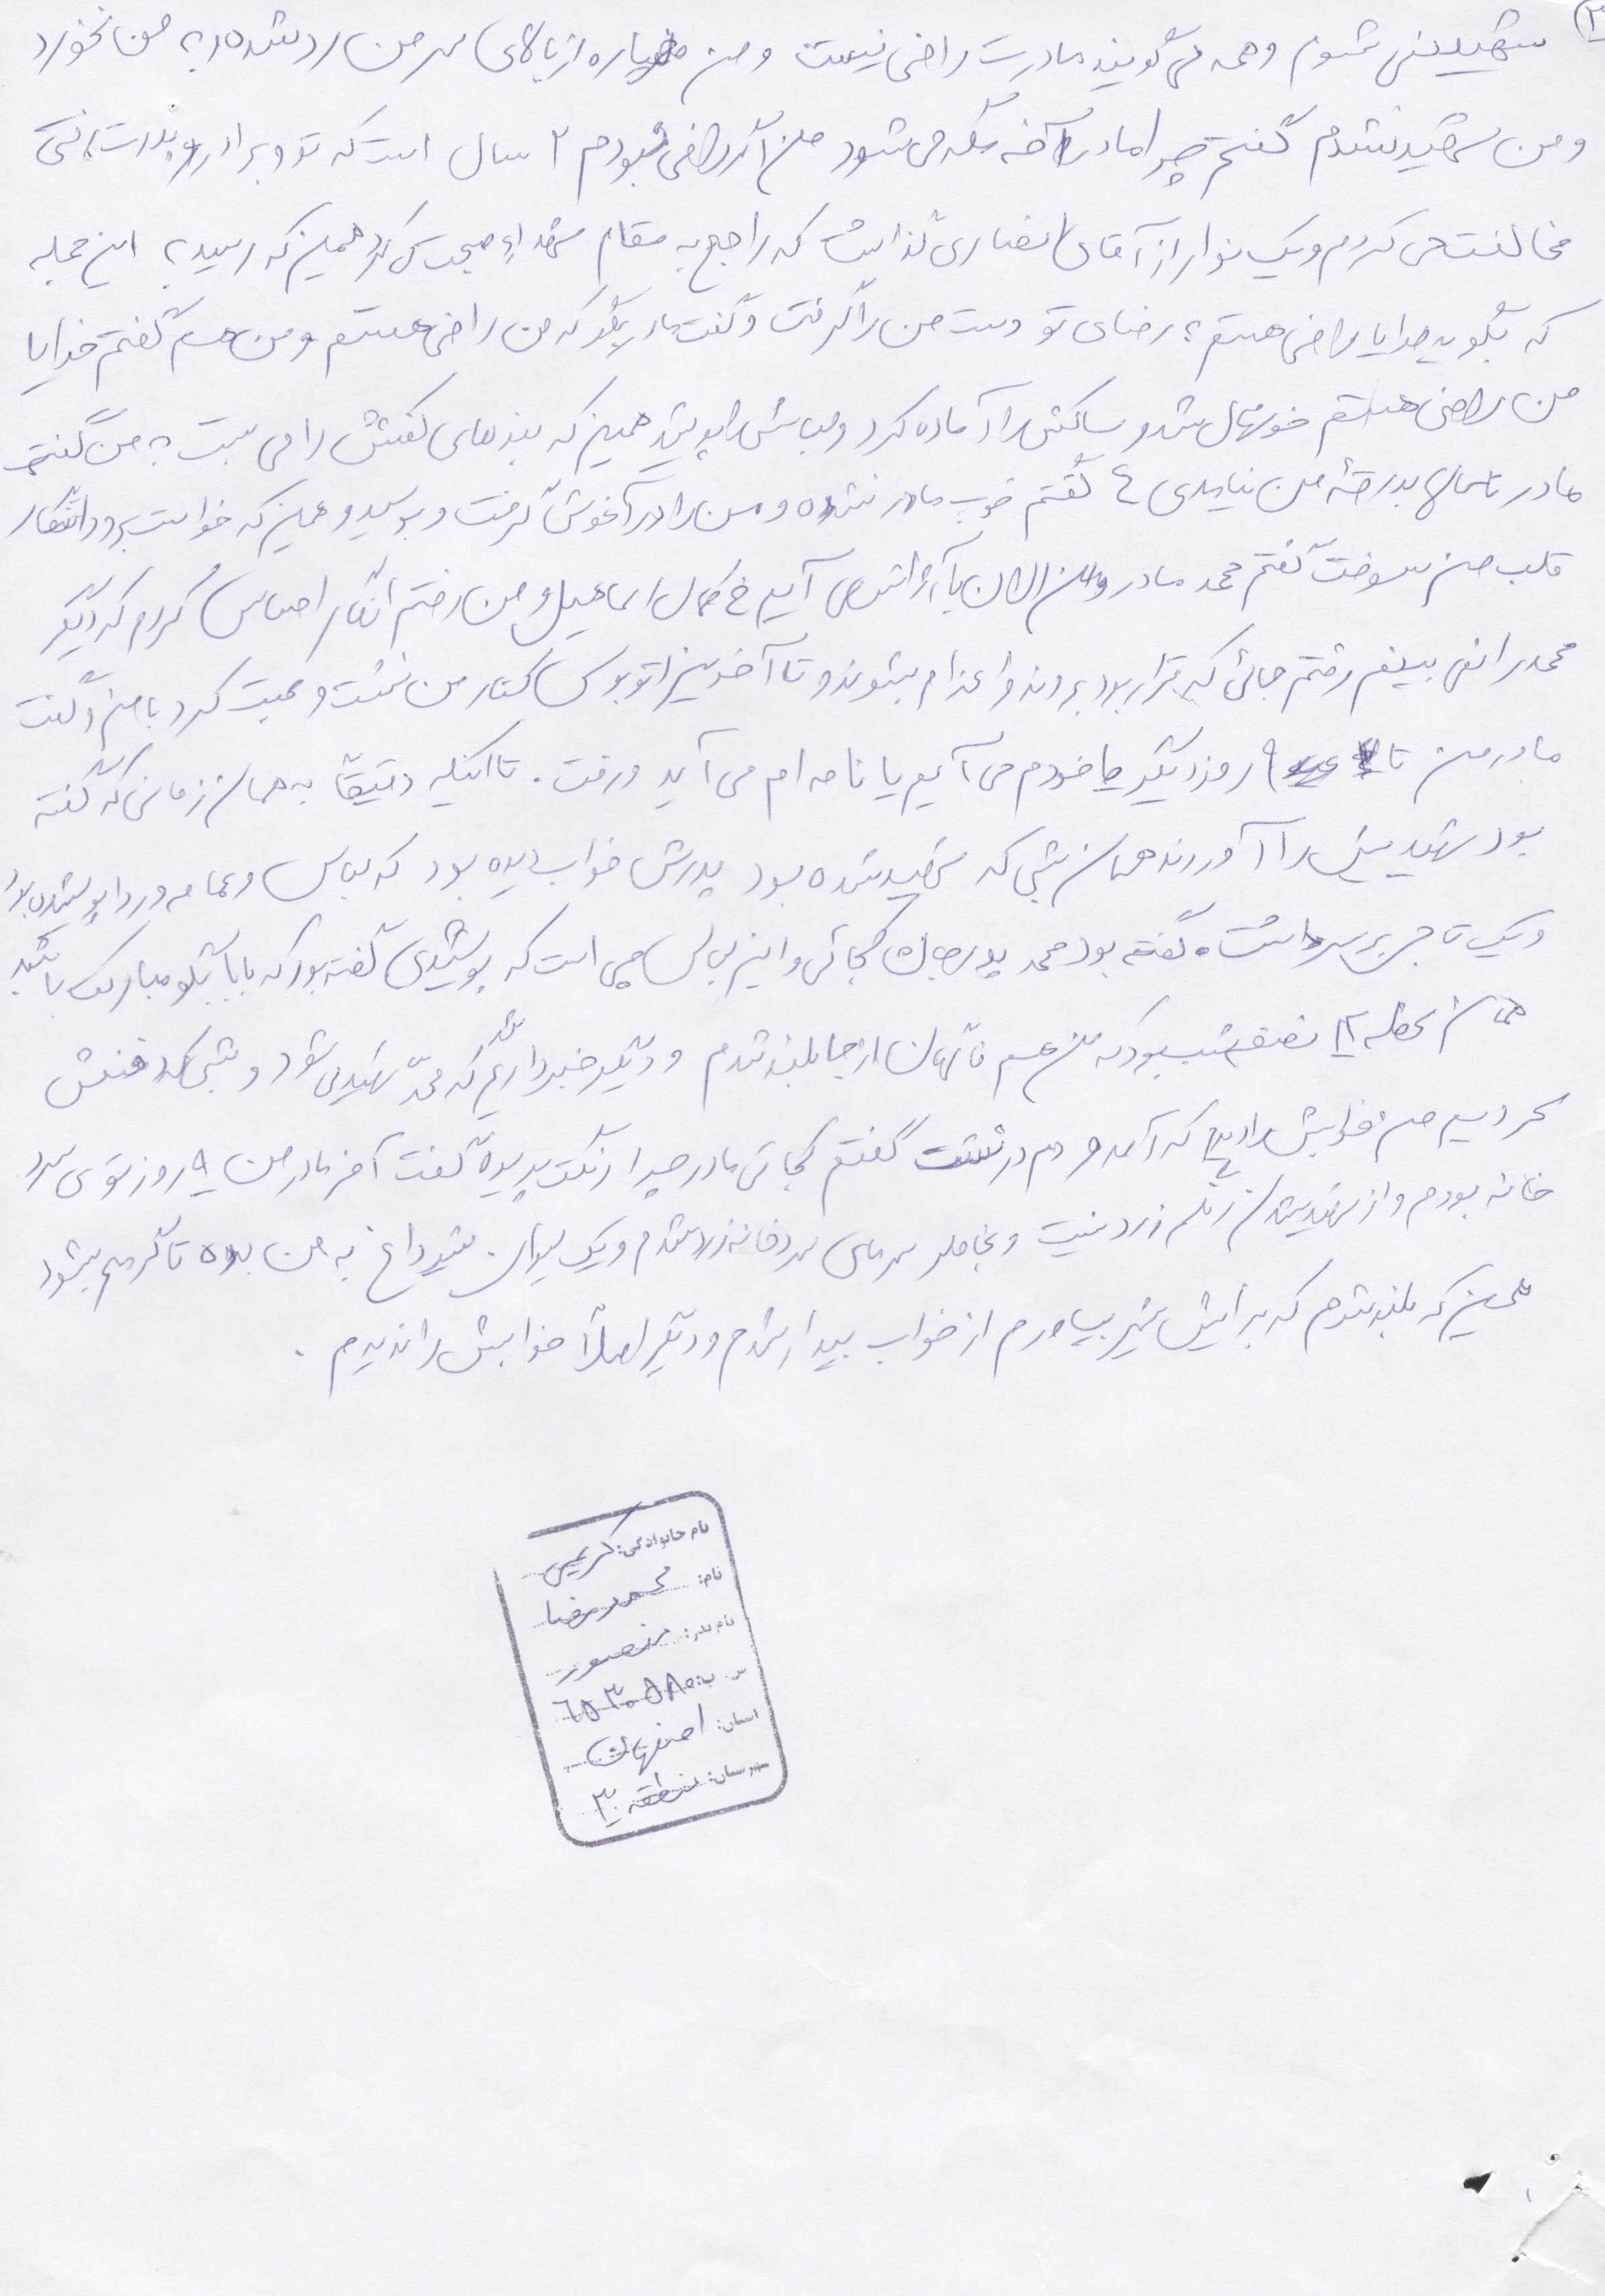 ۳
شهید نمی شوم و همه می گویند مادرت راضی نیست و من خمپاره از بالای سر من رد شده و به من نخورد
و من شهید نشدم گفتم چرا مادر آخه مگه می شود من اگر راضی نبودم ۲ سال است که تو و برادر و پدرت
مخالفت می کردم و یک نوار از آقای انصاری گذاشت که راجع به مقام شهداء صحبت می کرد همین که رسید به این جمله
که بگوید خدایا راضی هستم به رضای تو دست من را گرفت و گفت مادر بگو که من راضی هستم و من هم گفتم خدایا
من راضی هستم خوشحال شد و ساکش را آماده کرد و لباسش را پوشید همین که بندهای کفشش را می بست به من گفت
مادر تا حالا بدرقه من نیامدی گفتم خوب مادر نشده و من را در آغوش گرفت و بوسید و همین که خواست برود انگار
قلب من سوخت گفتم محمد مادر من الان با آژانس می آیم خ کمال اسماعیل و من رفتم انگار احساس کردم که دیگر
محمد را نمی بینم رفتم جائی که قرار بود بروند و اعزام بشوند و تا آخرین اتوبوس کنار من نشست و صحبت کرد با من و گفت
مادر من تا ۹ روز دیگر یا خودم می آیم یا نامه ام می آید و رفت. تا اینکه دقیقاً به همان زمانی که گفته
بود شهیدش را آوردند همان شبی که شهید شده بود پدرش خواب دیده بود که لباس و عمامه و ردا پوشیده بود
و یک تاج بر سر داشت گفته بود محمد پدر جان کجائی و این لباس چی است که پوشیدی گفته بود که بابا بگو مبارک باشد
همان لحظه ۱۲ نصف شب بود که من هم ناگهان از جا بلند شدم و دیگر خبر داریم که محمد شهید می شود و شبی که دفنش
کردیم من خوابش را دیدم که آمد و دم در نشست گفتم کجائی مادر چرا رنگت پریده گفت آخر مادر من ۹ روز توی سرد
خانه بودم و از شهید شدن رنگم زرد نیست و بخاطر سرمای سردخانه زرد شدم و یک لیوان شیر داغ به من بده تا گرمم بشود
همین که بلند شدم که برایش شیر بیاورم از خواب بیدار شدم و دیگر اصلاً خوابش را ندیدم.
نام خانوادگی: کریمی
نام: محمدرضا
نام پدر: منصور
س.ب: ۶۵۳۰۵۸۰
استان: اصفهان
شهرستان: منطقه ۳